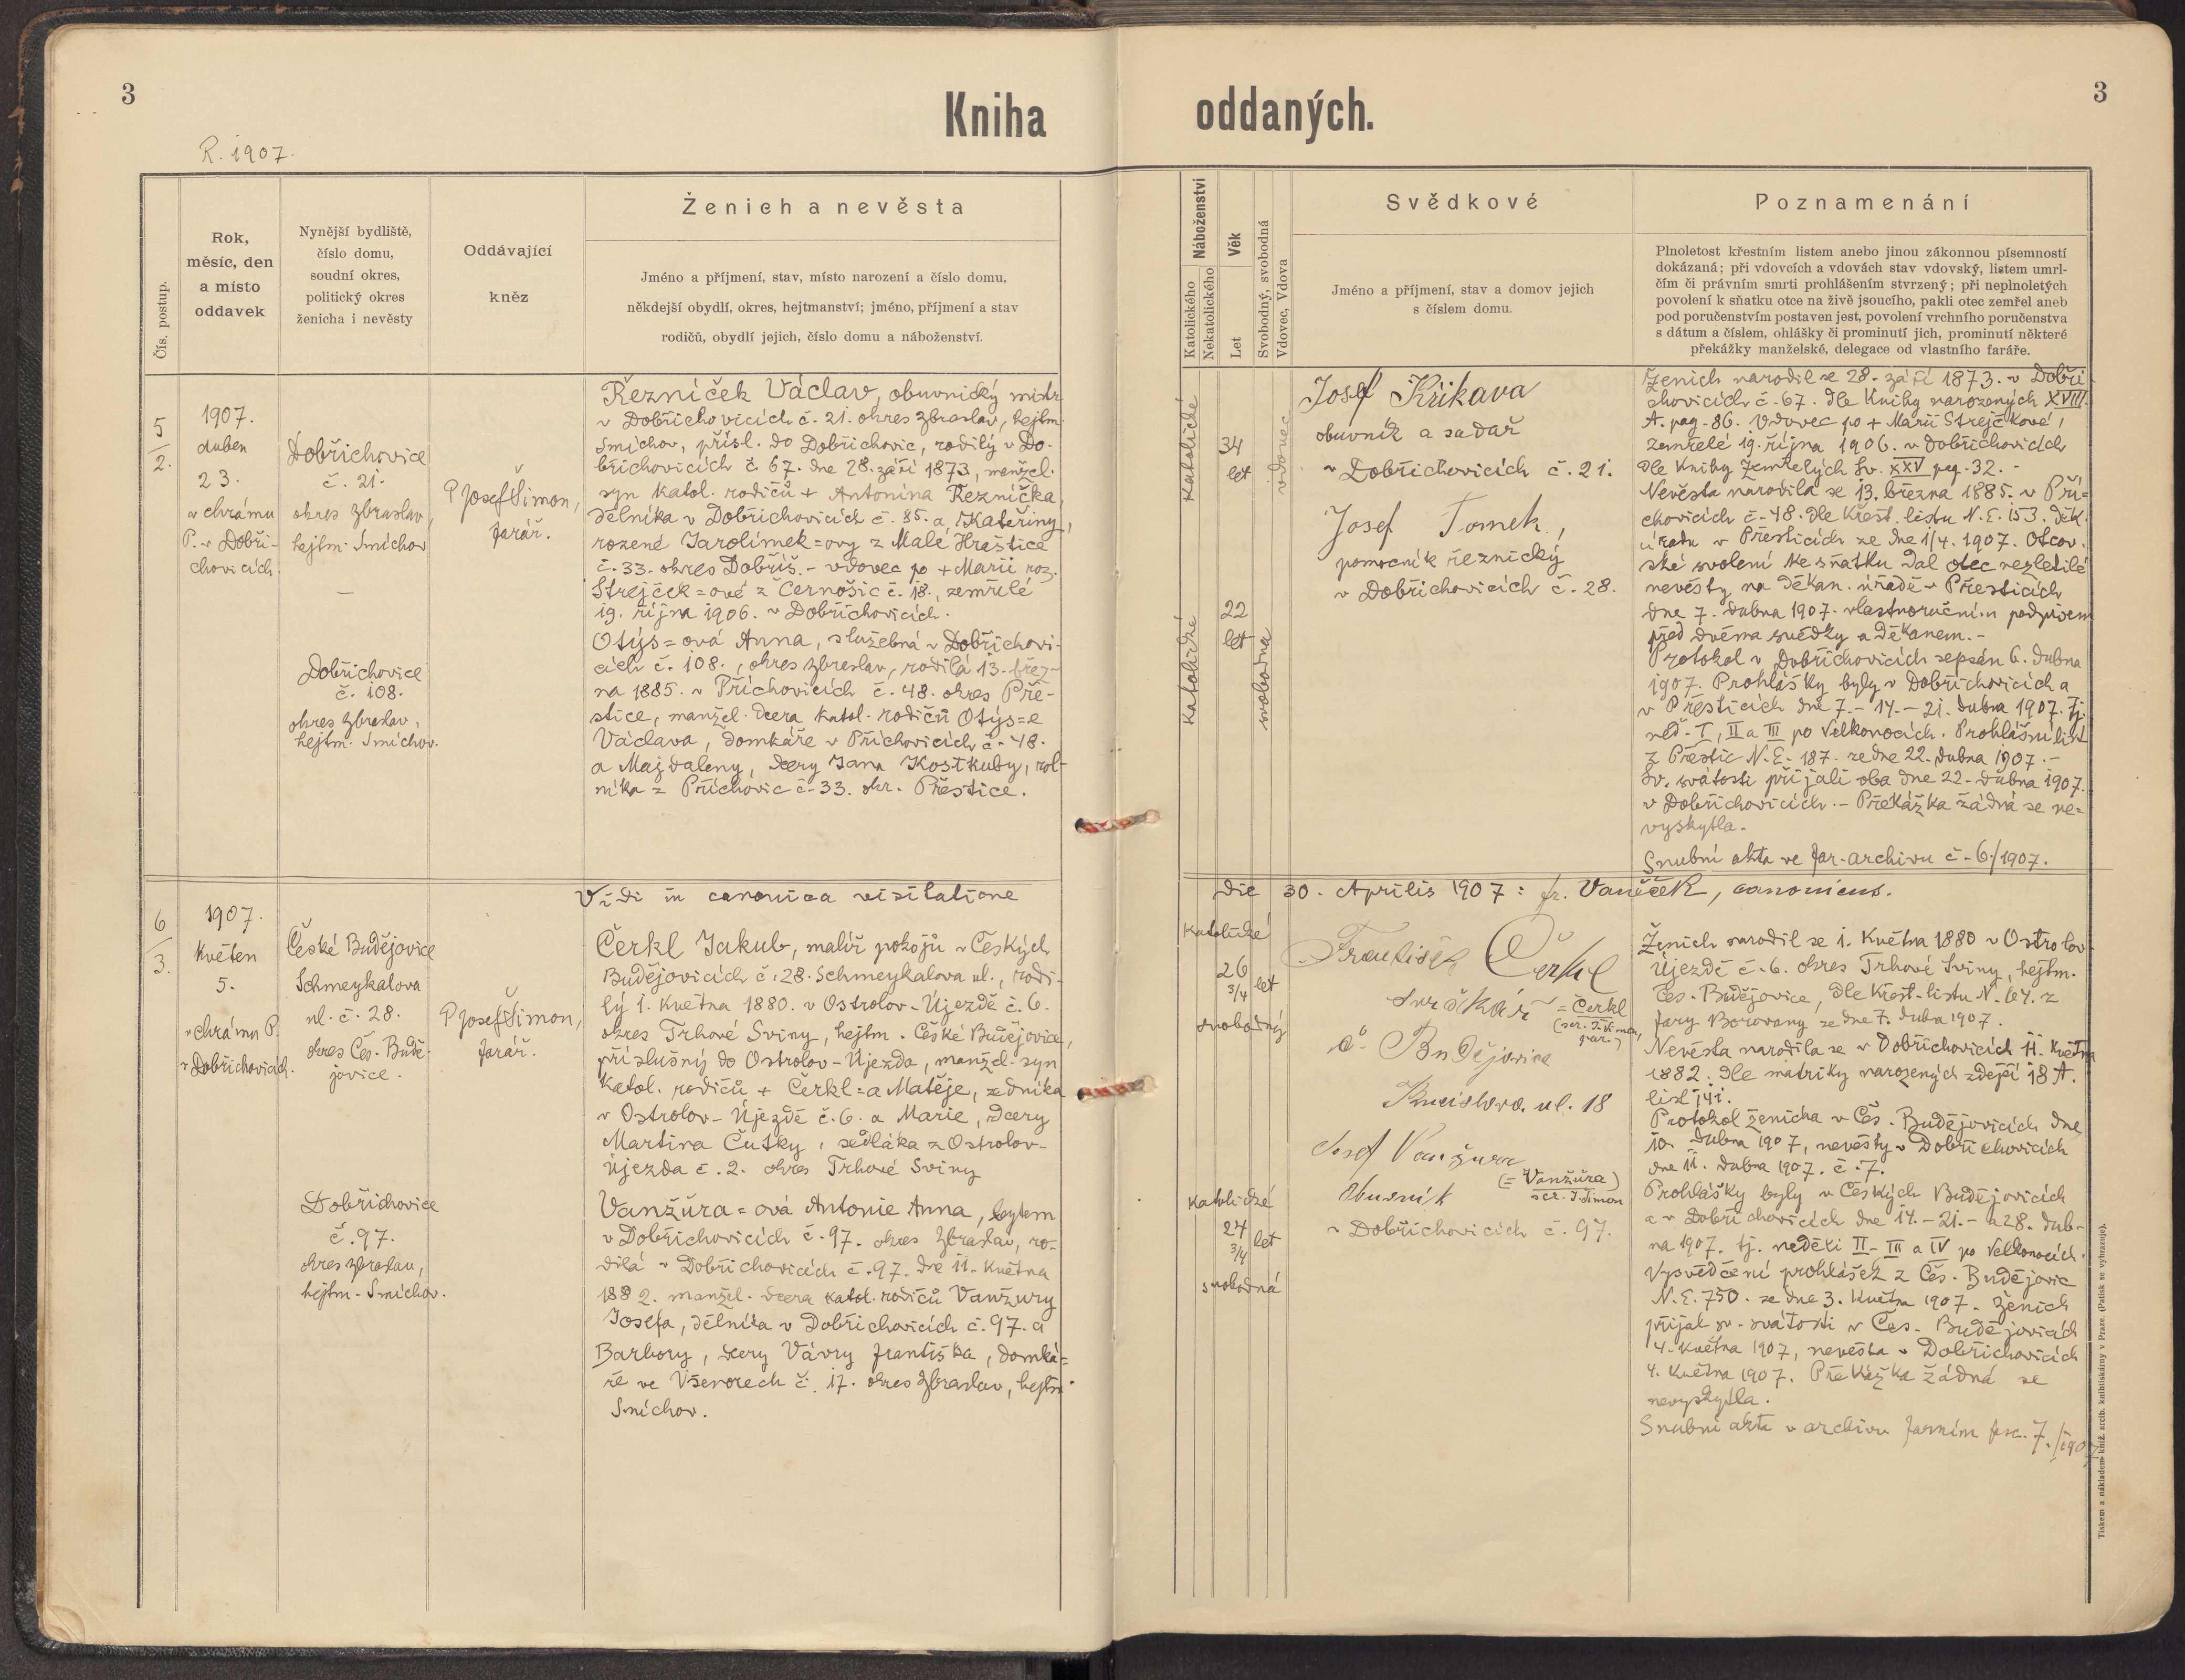 3
Kniha
oddaných.
3
R. 1907.
Čís. postup.
Rok,
měsíc, den
a místo
oddavek
Nynější bydliště,
číslo domu,
soudní okres,
politický okres
ženicha i nevěsty
Oddávající
kněz
Ženich a nevěsta
Jméno a příjmení, stav, místo narození a číslo domu,
někdejší obydlí, okres, hejtmanství; jméno, příjmení a stav
rodičů, obydlí jejich, číslo domu a náboženství.
Náboženství
Katolického
Nekatolického
Věk
Let
Svobodný, svobodná
Vdovec, Vdova
Svědkové
Jméno a příjmení, stav a domov jejich
s číslem domu.
Poznamenání
Plnoletost křestním listem anebo jinou zákonnou písemností
dokázaná; při vdovcích a vdovách stav vdovský, listem umrl-
čím či právním smrti prohlášením stvrzený; při neplnoletých
povolení k sňatku otce na živě jsoucího, pakli otec zemřel aneb
pod poručenstvím postaven jest, povolení vrchního poručenstva
s dátum a číslem, ohlášky či prominutí jich, prominutí některé
překážky manželské, delegace od vlastního faráře.
5
/
2.
1907.
duben
23.
v chrámu
P. v Dobři-
chovicích.
—
Dobřichovice
č. 21.
okres Zbraslav,
hejtm. Smíchov
Dobřichovice
č. 108.
okres Zbraslav,
hejtm. Smíchov.
P Josef Šimon,
farář.
Řezníček Václav, obuvnický mistr
v Dobřichovicích č. 21. okres Zbraslav, hejtm.
Smíchov, přísl. do Dobřichovic, rodilý v Do-
břichovicích č. 67. dne 28. září 1873, manžel.
syn katol. rodičů + Antonína Řezníčka,
dělníka v Dobřichovicích č. 85. a Kateřiny,
rozené Jarolímek=ovy z Malé Hraštice
č. 33. okres Dobříš. - vdovec po + Marii roz.
Strejček=ové z Černošic č. 18., zemřelé
19. října 1906. v Dobřichovicích.
Otýs=ová Anna, služebná v Dobřichovi-
cích č. 108., okres Zbraslav, rodilá 13. břez-
na 1885. v Příchovicích č. 48. okres Pře-
štice, manžel. dcera katol. rodičů Otýs=e
Václava, domkáře v Příchovicích č. 48.
a Majdaleny, dcery Jana Kostkuby, rol-
níka z Příchovic č. 33. okr. Přeštice.
Katolické
34
let
vdovec
Katolické
22
let
svobodna
Josef Křikava
obuvník a sadař
v Dobřichovicích č. 21.
Josef Tomek,
pomocník řeznický
v Dobřichovicích č. 28.
Ženich narodil se 28. září 1873. v Dobři-
chovicích č. 67. dle Knihy narozených XVIII.
A. pag. 86. Vdovec po + Marii Strejčkové,
zemřelé 19. října 1906. v Dobřichovicích
dle Knihy Zemřelých Sv. XXV pag. 32. -
Nevěsta narodila se 13. března 1885. v Pří=
chovicích č. 48. dle křest. listu N. E. 153. děk.
úřadu v Přešticích ze dne 1/4. 1907. Otcov.
ské svolení ke sňatku dal otec nezletilé
nevěsty na děkan. úřadě v Přešticích
dne 7. dubna 1907. vlastnoručním podpisem
před dvěma svědky a děkanem. -
Protokol v Dobřichovicích sepsán 6. dubna
1907. Prohlášky byly v Dobřichovicích a
v Přešticích dne 7. - 14. - 21. dubna 1907. tj.
ned. I, II a III po Velkonocích. Prohlášní list
z Přeštic N. E. 187. ze dne 22. dubna 1907. -
Sv. svátosti přijali oba dne 22. dubna 1907.
v Dobřichovicích. - Překážka žádná se ne=
vyskytla.
Snubní akta ve far. archivu č. 6/1907.
Vidi in canonica visitatione
die 30. Aprilis 1907: fr. Vaníček, canonicus.
6
/
3.
1907.
květen
5.
v chrámu P.
v Dobřichovicích.
České Budějovice
Schmeykalova
ul. č. 28.
okres Čes. Budě-
jovice.
Dobřichovice
č. 97.
okres Zbraslav,
hejtm. Smíchov.
P Josef Šimon,
farář.
Čerkl Jakub, malíř pokojů v Českých
Budějovicích č. 28. Schmeykalova ul., rodi-
lý 1. května 1880. v Ostrolov-Újezdě č. 6.
okres Trhové Sviny, hejtm. České Budějovice,
příslušný do Ostrolov-Újezda, manžel. syn
katol. rodičů + Čerkl=a Matěje, zedníka
v Ostrolov-Újezdě č. 6. a Marie, dcery
Martina Čutky, sedláka z Ostrolov-
Újezda č. 2. okres Trhové Sviny
Vanžura=ová Antonie Anna, bytem
v Dobřichovicích č. 97. okres Zbraslav, ro-
dilá v Dobřichovicích č. 97. dne 11. května
1882. manžel. dcera katol. rodičů Vanžury
Josefa, dělníka v Dobřichovicích č. 97. a
Barbory, dcery Vávry Františka, domká=
ře ve Všenorech č. 17. okres Zbraslav, hejtm.
Smíchov.
Katolické
26
3/4 let
svobodný
Katolické
24
3/4 let
svobodná
František Čerkl
= Čerkl
(scr. J. Šimon,
far.)
Č. Budějovice
ul. 18
Josef Vanžura
(= Vanžura)
scr. J. Šimon
Obuvník
v Dobřichovicích č. 97.
Ženich narodil se 1. května 1880 v Ostrolov-
Újezdě č. 6. okres Trhové Sviny, hejtm.
Čes. Budějovice, dle křest. listu N. 64. z
fary Borovany ze dne 7. dubna 1907.
Nevěsta narodila se v Dobřichovicích 11. května
1882. dle matriky narozených zdejší 18 A.
list 141.
Protokol ženicha v Čes. Budějovicích dne
10. dubna 1907, nevěsty v Dobřichovicích
dne 11. dubna 1907. č. 7.
Prohlášky byly v Českých Budějovicích
a v Dobřichovicích dne 14. - 21. - a 28. dub-
na 1907. tj. neděli II - III a IV po Velkonocích.
Vysvědčení prohlášek z Čes. Budějovic
N. E. 750. ze dne 3. května 1907. Ženich
přijal sv. svátosti v Čes. Budějovicích
4. května 1907, nevěsta v Dobřichovicích
4. května 1907. Překážka žádná se
nevyskytla.
Snubní akta v archivu farním fasc. 7./1907
Tiskem a nákladem kníž. arcib. knihtiskárny v Praze. (Patisk se vyhrazuje).